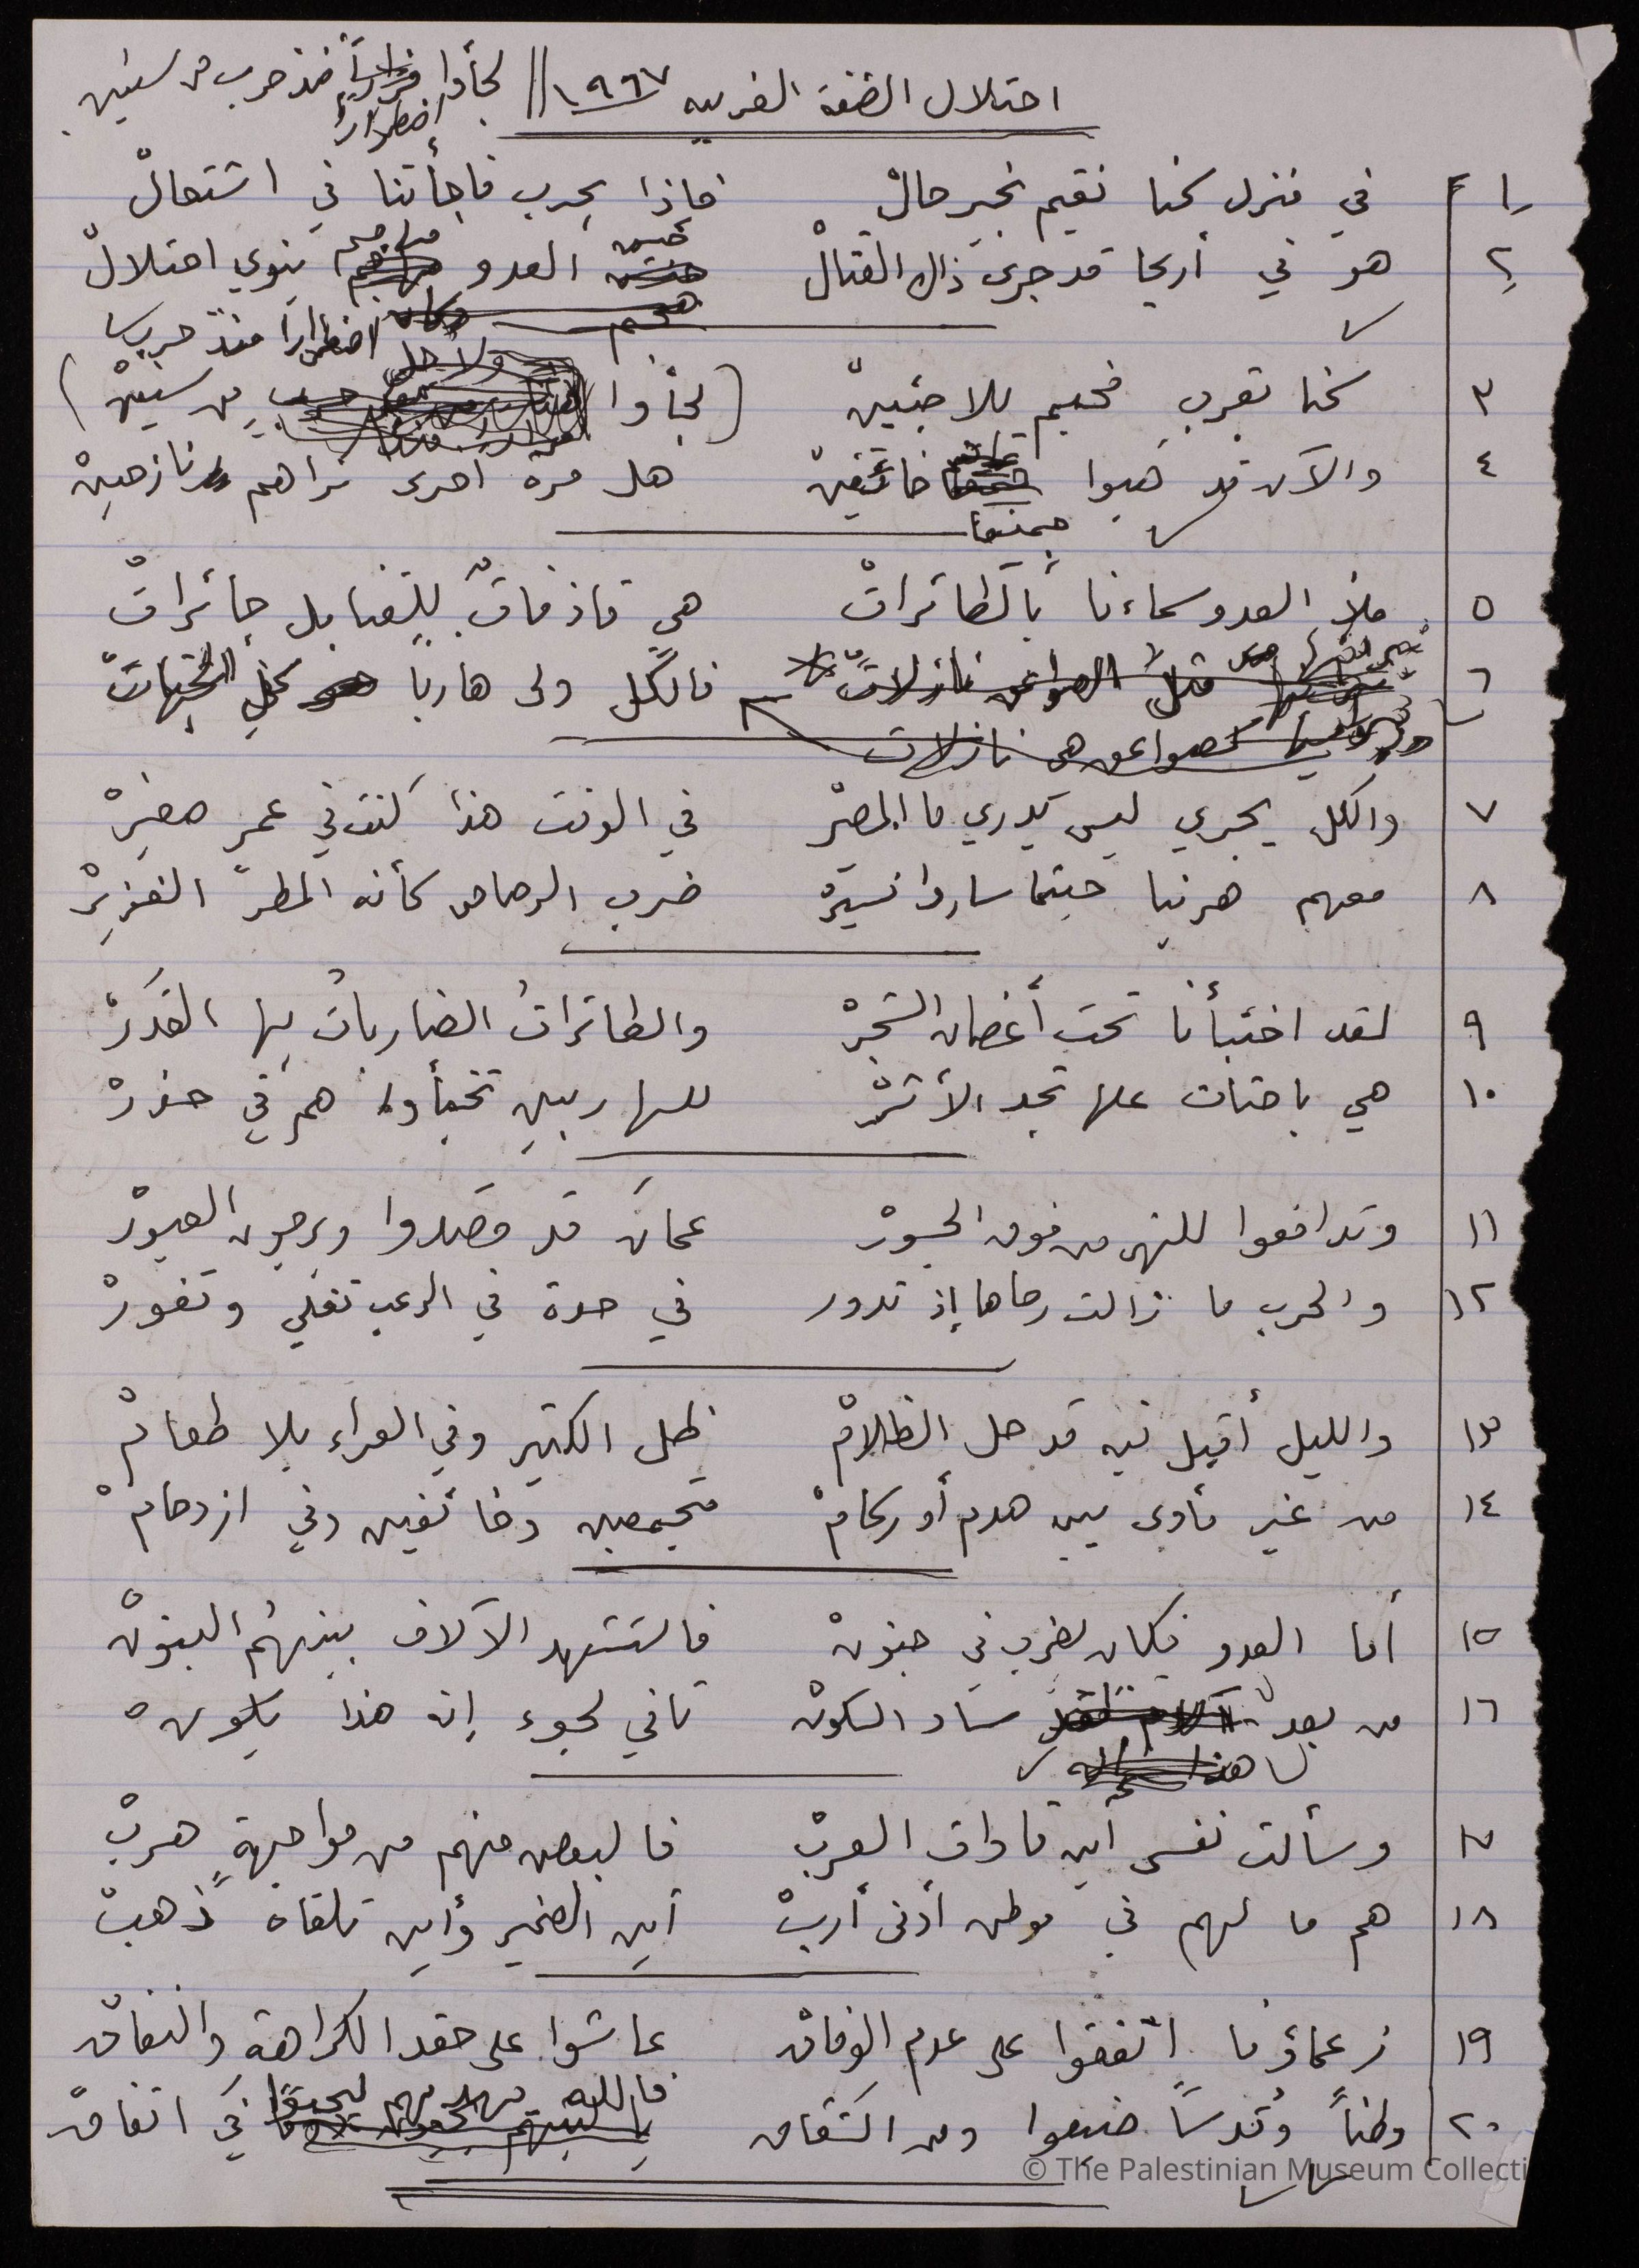 احتلال الضفة الغربيه ١٩٦٧ // لجأوا اضطراراً منذ حرب من سنين
١ في منزل كنا نقيم بخير حالْ فإذا بحرب فاجأتنا في اشتعالْ
٢ هو في أريحا قد جرى ذاك القتالْ العدو مهاجم ينوي احتلالْ
اضطرارا منذ حرب
٣ كنا بقرب مخيم للاجئينْ (لجأوا من سنينْ)
٤ والآن قد هبوا خائفينْ هل مرة اخرى نراهم نازحينْ
جميعا
٥ ملأ العدو سماءنا بالطائراتْ هي قاذفاتٌ للقنابل جائراتْ
٦ مثل الصواعق نازلاتْ فالكل ولى هاربا كل الجهاتْ
كصواعق هي نازلات
٧ والكل يجري ليس يدري ما المصيرْ في الوقت هذا كنت في عمر صغيرْ
٨ معهم هربنا حيثما ساروا نسيرْ ضرب الرصاص كأنه المطر الغزيرْ
٩ لقد اختبأنا تحت أغصان الشجرْ والطائراتُ الضارباتُ بها القدَرْ
١٠ هي باحثات علها تجد الأثرْ للهاربين تخبأوا هم في حذرْ
١١ وتدافعوا للنهر من فوق الجسورْ عمانَ قد قصدوا ويرجون العبورْ
١٢ والحرب ما زالت رحاها إذ تدور في حدة في الرعب تغلي وتفورْ
١٣ والليل أقبل فيه قد حل الظلامْ ظل الكثير وفي العراء بلا طعامْ
١٤ من غير مأوى بين هدم أو ركامْ متجمعين وخائفين وفي ازدحامْ
١٥ أما العدو فكان يضرب في جنونْ فاستشهد الآلاف بينهُم البنونْ
١٦ من بعد ساد السكونْ ثاني لجوء إن هذا يكونْ
هذا
١٧ وسألت نفسي أين قادات العربْ فالبعض منهم من مواجهةٍ هربْ
١٨ هم ما لهم في موطن أدنى أربْ أين الضمير وأين تلقاه ذهبْ
١٩ زعماؤنا اتفقوا على عدم الوفاق عاشوا على حقد الكراهة والنفاقْ
٢٠ وطناً وقدساً ضيعوا ومن الشقاق فالله يهديهم ليحيوا في اتفاقْ
© The Palestinian Museum Collecti